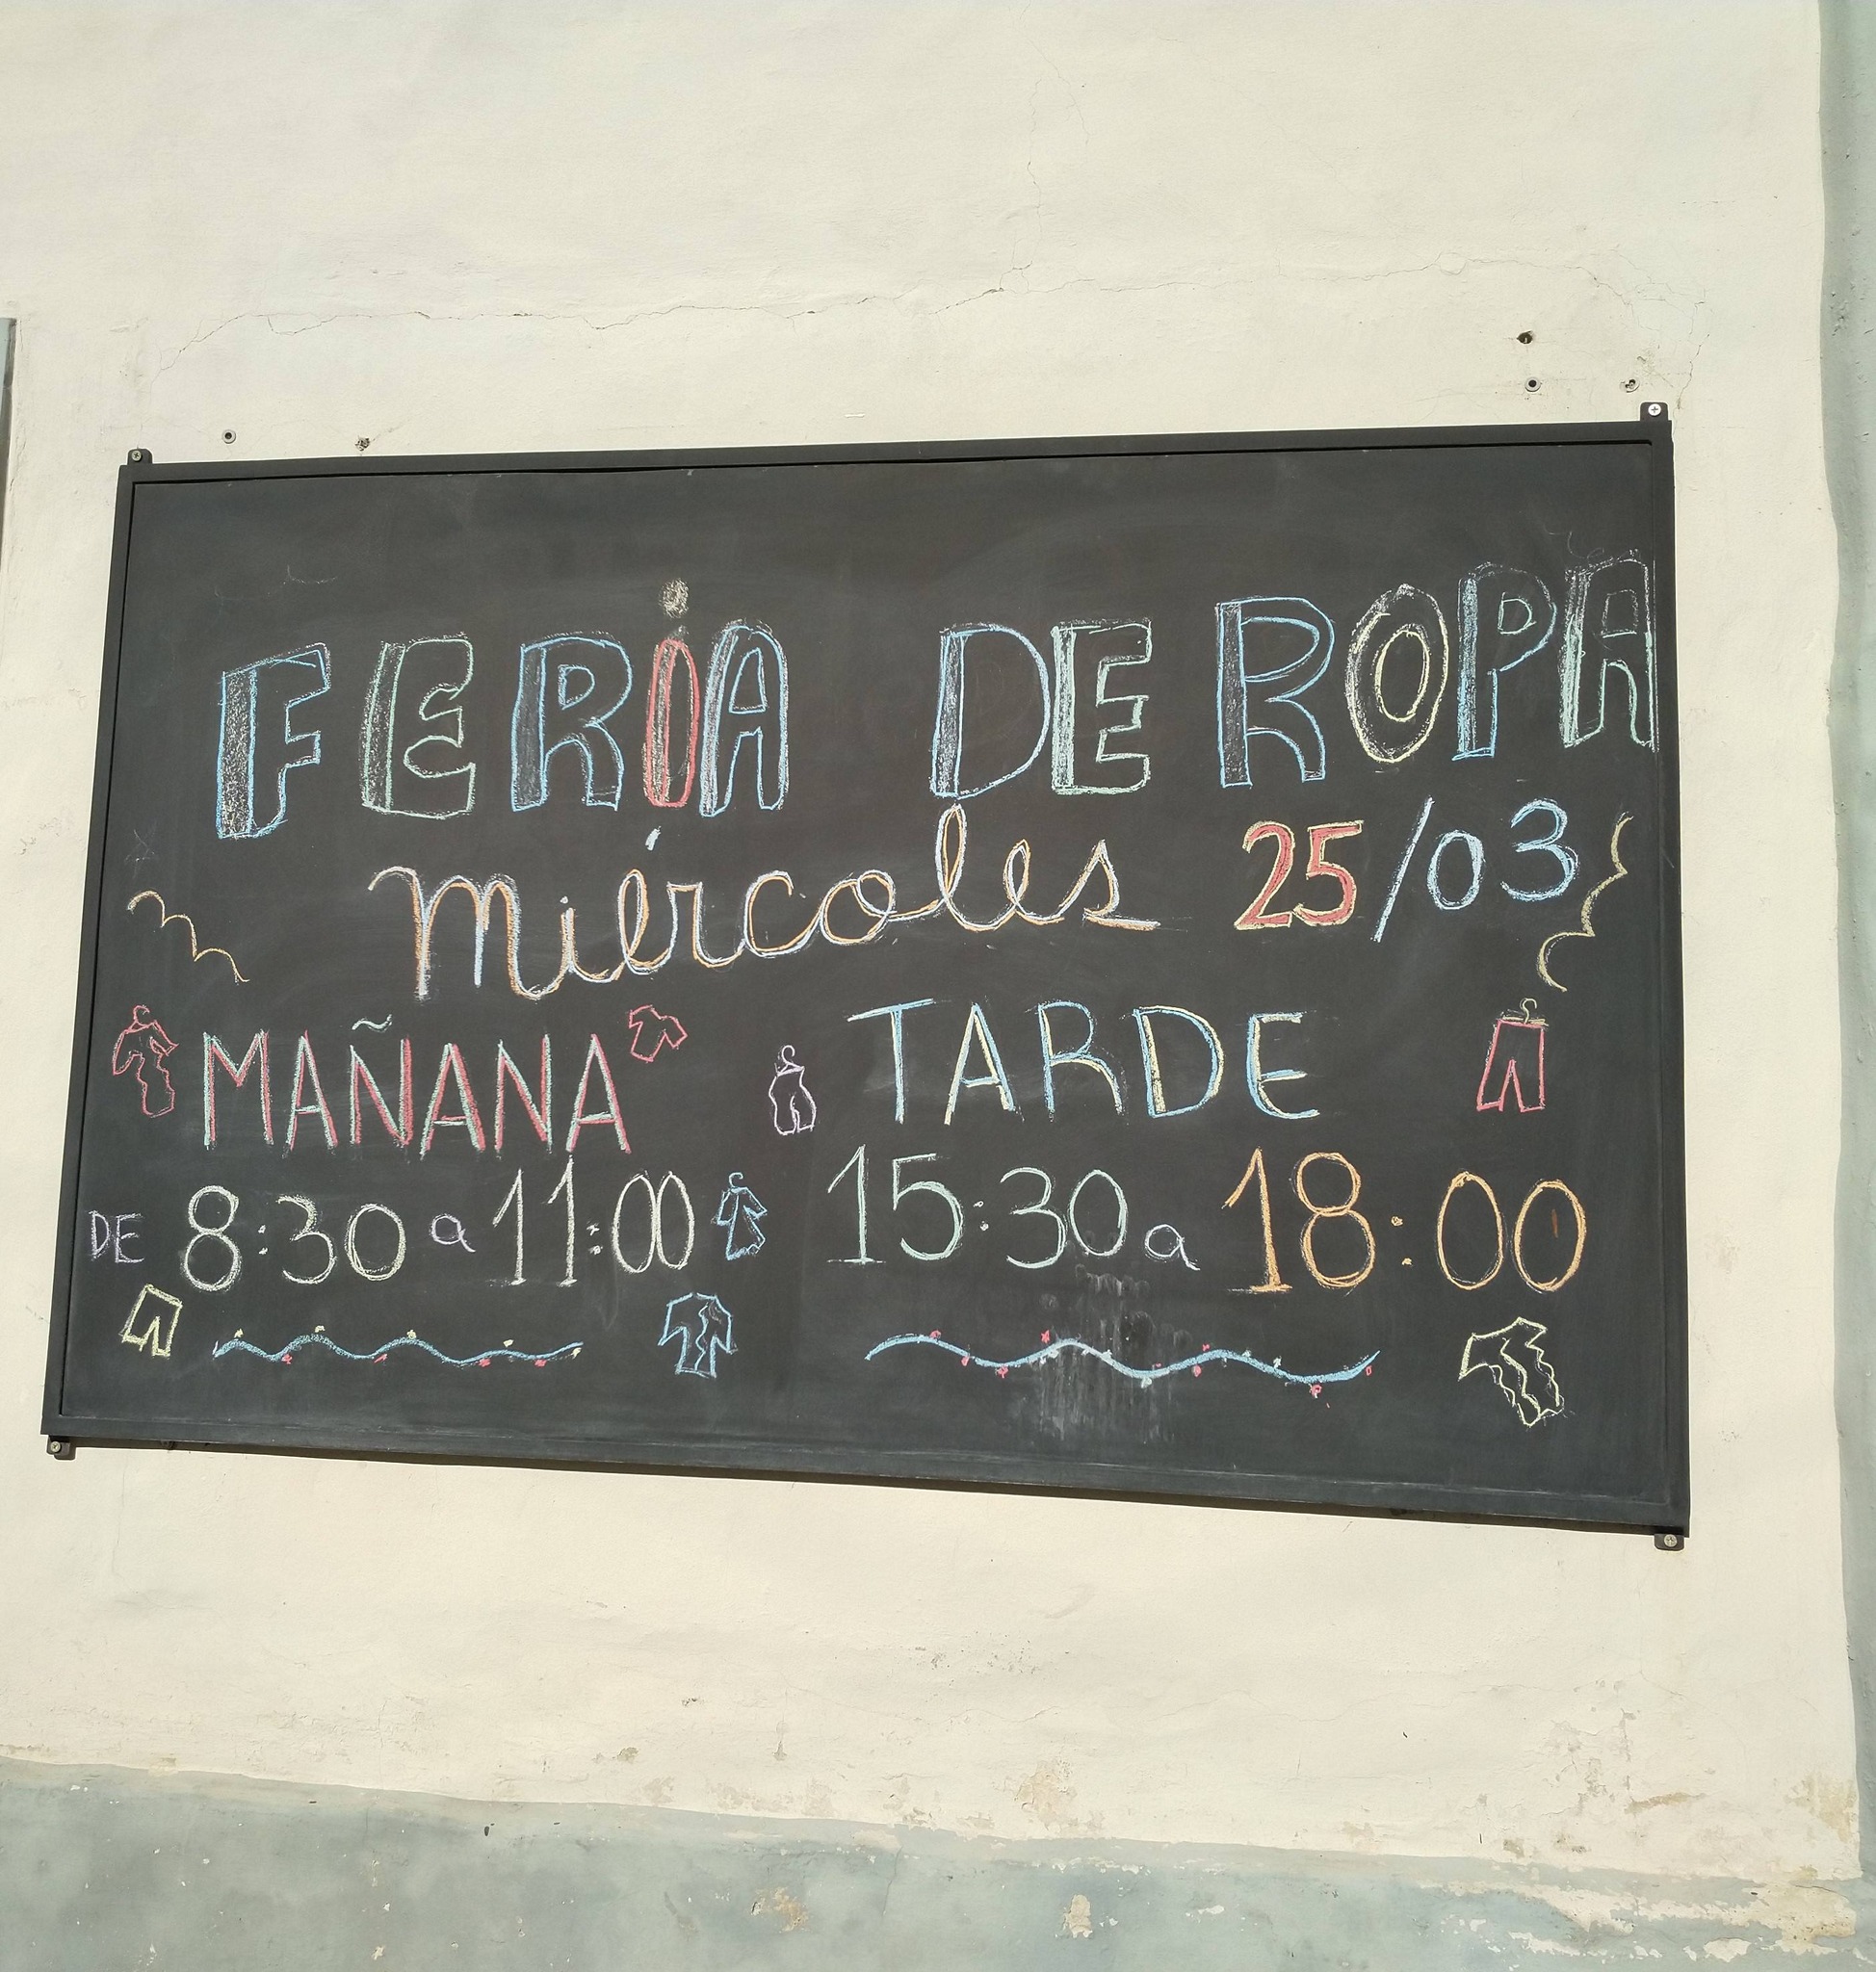 FERiA DE ROPA
Miércoles 25/03
MAÑANA TARDE
DE 8:30 a 11:00 15:30 a 18:00